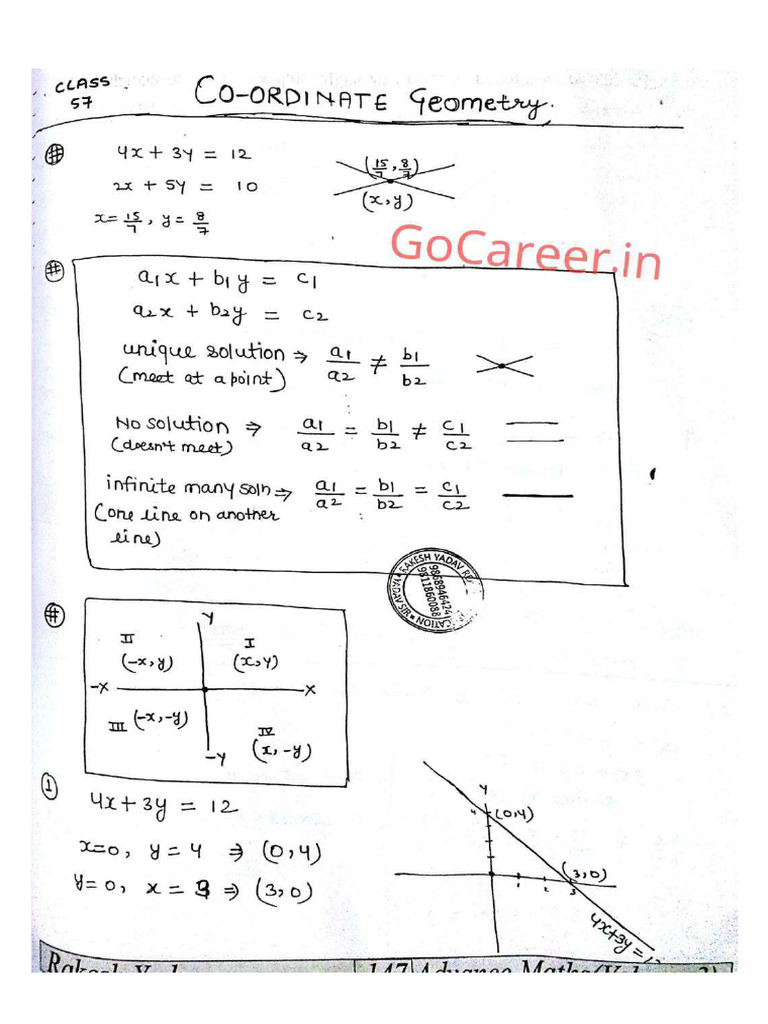 CLASS 57
CO-ORDINATE Geometry.
4x + 3y = 12
2x + 5y = 10
x = 15/7, y = 8/7
(15/7, 8/7)
(x, y)
GoCareer.in
a1x + b1y = c1
a2x + b2y = c2
unique solution ⇒ a1/a2 ≠ b1/b2
(meet at a point)
No solution ⇒ a1/a2 = b1/b2 ≠ c1/c2
(doesn't meet)
infinite many soln ⇒ a1/a2 = b1/b2 = c1/c2
(one line on another
line)
RAKESH YADAV
9868946424
9811860088
YADAV SIR
Y
II
(-x, y)
I
(x, y)
-X
X
III (-x, -y)
IV
(x, -y)
-Y
1
4x + 3y = 12
x=0, y = 4 ⇒ (0, 4)
y=0, x = 3 ⇒ (3, 0)
Y
4
(0,4)
(3,0)
1 2 3
4x+3y=12
147